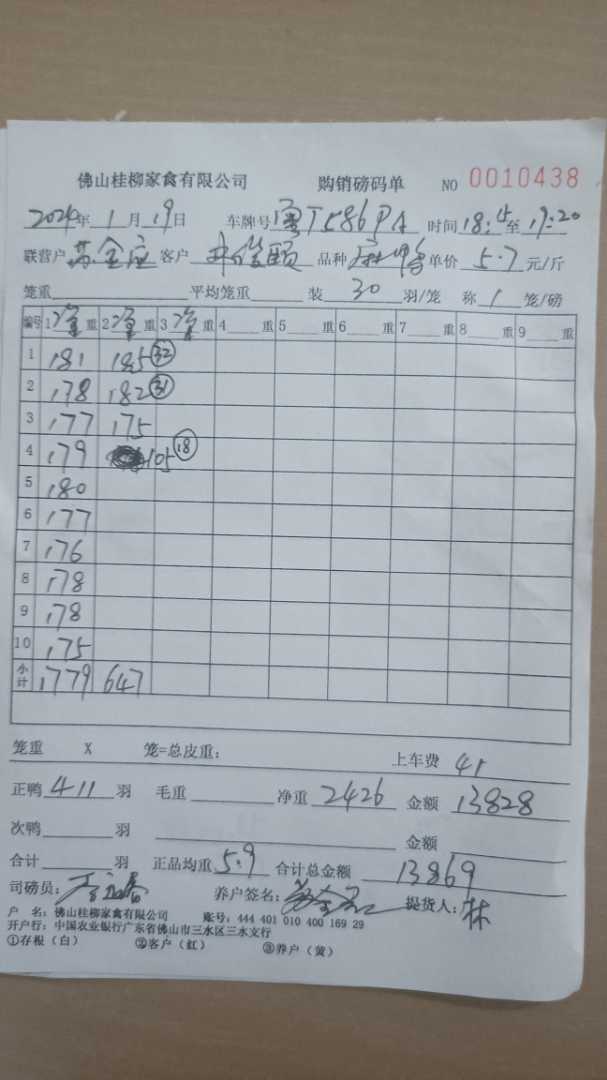 佛山桂柳家禽有限公司 购销磅码单 NO 0010438
2024年1月19日 车牌号粤T586PA 时间18:45至19:20
联营户 苏金应 客户 品种 麻鸭 单价 5.7 元/斤
笼重 平均笼重 装 30 羽/笼 称 1 笼/磅
编号 1净重 2净重 3净重 4 重 5 重 6 重 7 重 8 重 9 重
1 181 185 ㉜
2 178 182 ㉛
3 177 175
4 179 105 ⑱
5 180
6 177
7 176
8 178
9 178
10 175
小计 1779 647
笼重 X 笼=总皮重: 上车费 41
正鸭 411 羽 毛重 净重 2426 金额 13828
次鸭 羽 金额
合计 羽 正品均重 5.9 合计总金额 13869
司磅员: 养户签名: 提货人: 林
户 名: 佛山桂柳家禽有限公司 账号: 444 401 010 400 169 29
开户行: 中国农业银行广东省佛山市三水区三水支行
①存根(白) ②客户(红) ③养户(黄)